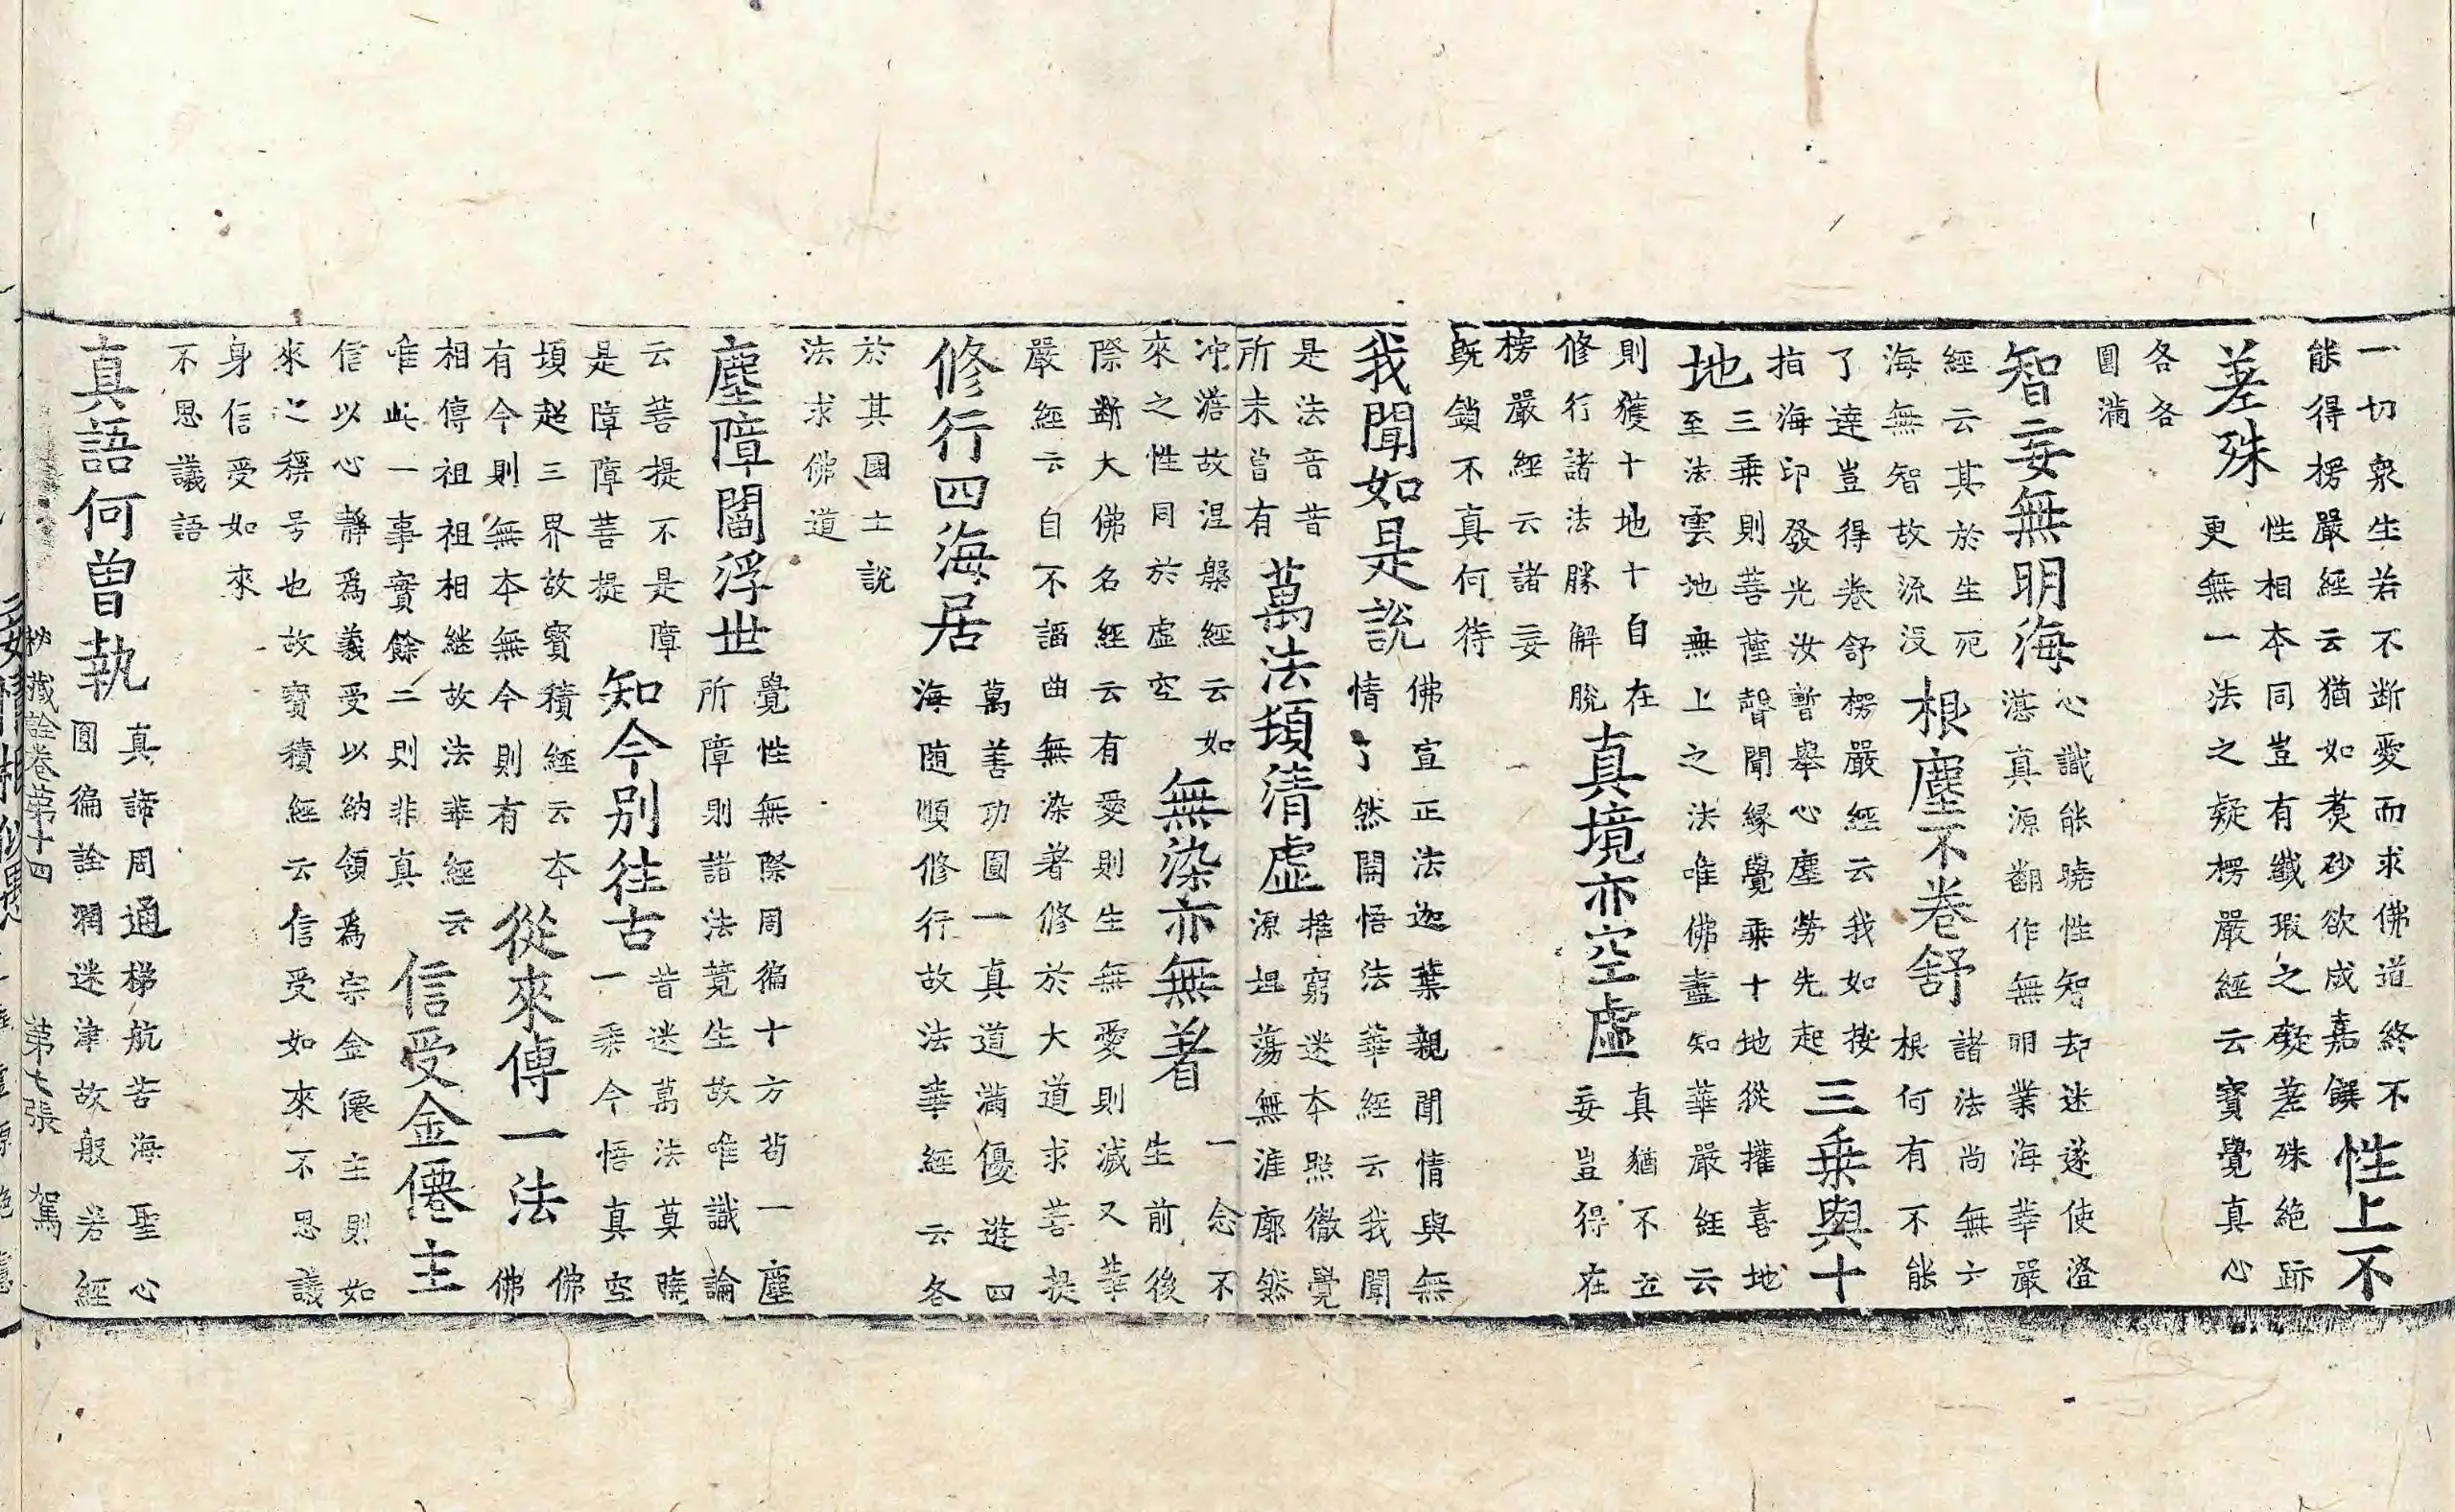 一切衆生若不断愛而求佛道終不
能得楞嚴經云猶如煑砂欲成嘉饌
性上不
差殊
性相本同豈有纎瑕之礙差殊絶跡
更無一法之疑楞嚴經云寳覺真心
各各
圓滿
智妄無明海
心識能曉性智却迷遂使澄
湛真源翻作無明業海華嚴
經云其於生死
海無智故流没
根塵不卷舒
諸法尚無六
根何有不能
了達豈得卷舒楞嚴經云我如按
指海印發光汝暫舉心塵勞先起
三乗與十
地
三乗則菩薩聲聞縁覺乗十地從權喜地
至法雲地無上之法唯佛盡知華嚴經云
則獲十地十自在
修行諸法勝解脫
真境亦空虛
真猶不立
妄豈得在
楞嚴經云諸妄
旣鎖不真何待
我聞如是說
佛宣正法迦葉親聞情與無
情了然開悟法華經云我聞
是法音昔
所未曾有
萬法頓清虛
推窮迷本照徹覺
源坦蕩無涯廓然
冲澹故涅槃經云如
來之性同於虛空
無染亦無著
一念不
生前後
際斷大佛名經云有愛則生無愛則滅又華
嚴經云自不謟曲無染著修於大道求菩提
修行四海居
萬善功圓一真道滿優遊四
海随順修行故法華經云各
於其國土說
法求佛道
塵障閻浮世
覺性無際周徧十方苟一塵
所障則諸法競生故唯識論
云菩提不是障
是障障菩提
知今別往古
昔迷萬法莫曉
一乗今悟真空
頃超三界故寳積經云本
有今則無本無今則有
從來傳一法
佛
佛
相傳祖祖相継故法華經云
唯此一事實餘二則非真
信受金僊主
信以心靜爲義受以納領爲宗金僊主則如
來之稱号也故寳積經云信受如來不思議
身信受如來
不思議語
真語何曽執
真諦周通梯航苦海聖心
圓徧詮潤迷津故般若經
秘藏詮卷第十四 第七張 駕